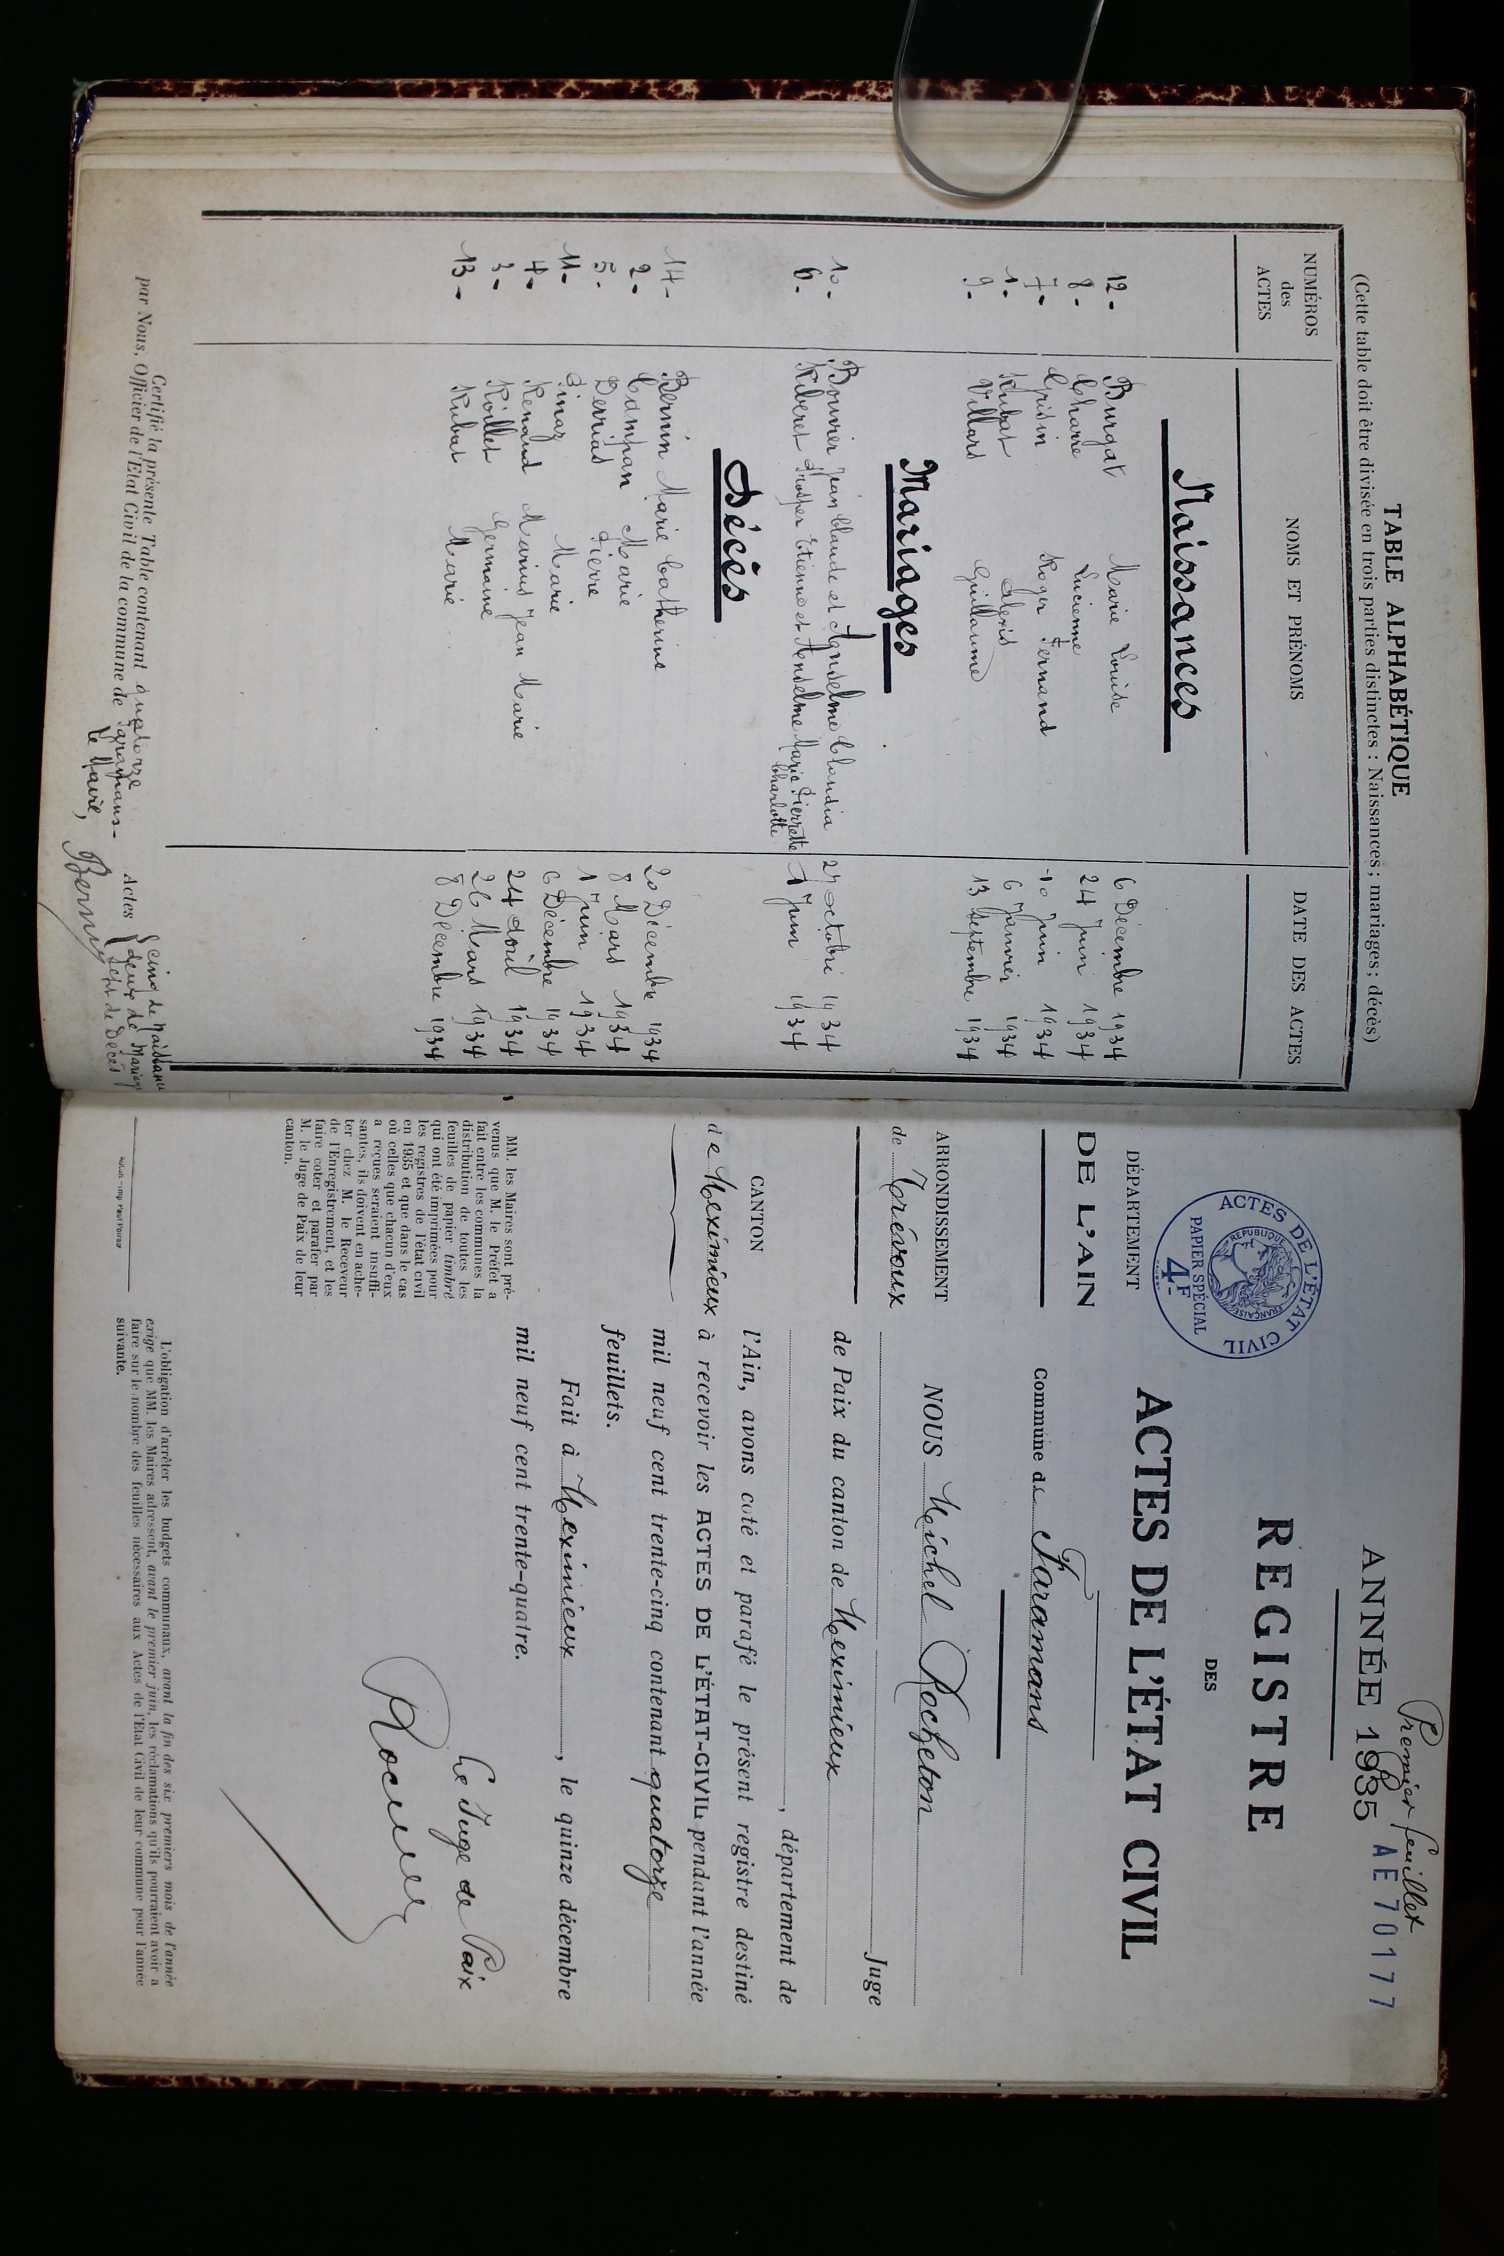 TABLE ALPHABÉTIQUE
(Cette table doit être divisée en trois parties distinctes : Naissances; mariages; décès)
NUMÉROS des ACTES
NOMS ET PRÉNOMS
DATE DES ACTES
Naissances
12- Burgat Marie Louise 6 Décembre 1934
8- Charre Lucienne 24 Juin 1934
7- Grisin Roger Fernand 10 Juin 1934
1- Rubat Alexis 6 Janvier 1934
9- Villard Guillaume 13 Septembre 1934
Mariages
10- Bouvier Jean Claude et Anselme Claudia 27 octobre 1934
6- Riberet Prosper Etienne et Anselme Marie Pierrette Charlotte 7 Juin 1934
Décès
14- Bernin Marie Catherine 20 Décembre 1934
2- Campan Marie 8 Mars 1934
5- Derrias Pierre 1 Juin 1934
11- Pinaz Marie 6 Décembre 1934
4- Renaud Marius Jean Marie 24 Avril 1934
3- Roillet Germaine 26 Mars 1934
13- Rubat Marie 8 Décembre 1934
Certifié la présente Table contenant quatorze Actes { cinq de Naissance
deux de Mariage
sept de Décès
par Nous, Officier de l'État Civil de la commune de Faramans-
Le Maire,
Premier feuillet
ANNÉE 1935
AE 70177
REGISTRE
DES
ACTES DE L'ÉTAT CIVIL
ACTES DE L'ÉTAT CIVIL
REPUBLIQUE FRANÇAISE
PAPIER SPÉCIAL
4F
DÉPARTEMENT
DE L'AIN
ARRONDISSEMENT
de Trévoux
CANTON
de Meximieux
Commune de Faramans
NOUS Michel Rocheton
Juge
de Paix du canton de Meximieux
, département de
l'Ain, avons coté et parafé le présent registre destiné
à recevoir les ACTES DE L'ÉTAT-CIVIL pendant l'année
mil neuf cent trente-cinq contenant quatorze
feuillets.
Fait à Meximieux , le quinze décembre
mil neuf cent trente-quatre.
Le Juge de Paix
MM. les Maires sont pré-
venus que M. le Préfet a
fait entre les communes la
distribution de toutes les
feuilles de papier timbré
qui ont été imprimées pour
les registres de l'état civil
en 1935 et que dans le cas
où celles que chacun d'eux
a reçues seraient insuffi-
santes, ils doivent en ache-
ter chez M. le Receveur
de l'Enregistrement, et les
faire coter et parafer par
M. le Juge de Paix de leur
canton.
L'obligation d'arrêter les budgets communaux, avant la fin des six premiers mois de l'année
exige que MM. les Maires adressent, avant le premier juin, les réclamations qu'ils pourraient avoir à
faire sur le nombre des feuilles nécessaires aux Actes de l'État Civil de leur commune pour l'année
suivante.